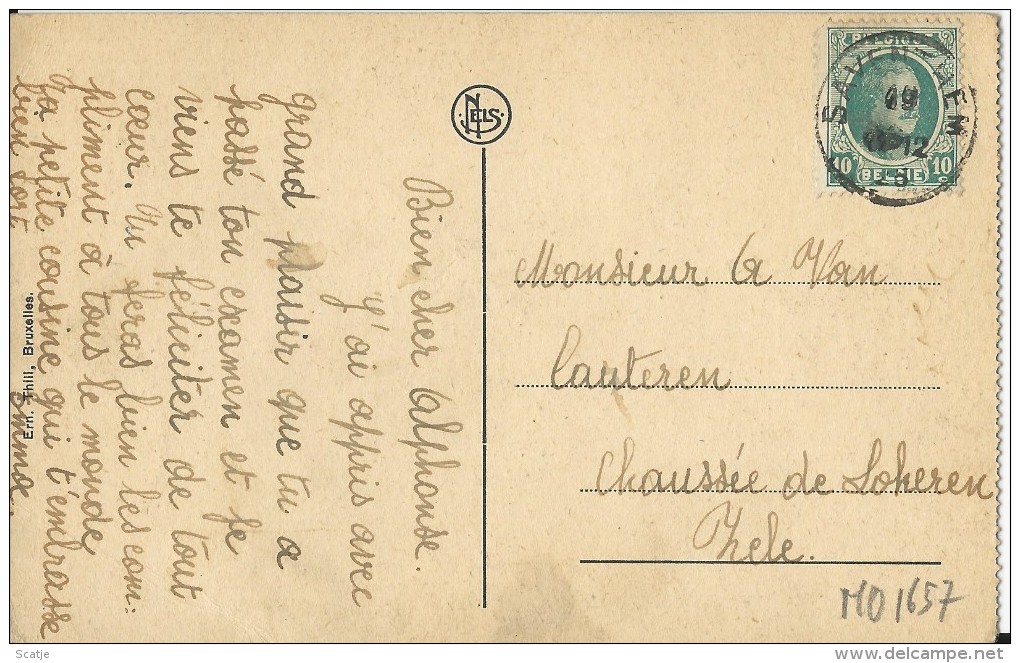 Bien cher Alphonse.
J'ai appris avec
grand plaisir que tu a
passé ton examen et je
viens te féliciter de tout
cœur. Tu feras bien les com-
pliment à tous le monde
Ta petite cousine qui t'embrasse
bien fort
Emma.
Ern. Thill, Bruxelles.
NELS
BELGIQUE
SAVENTHEM
19
12
10 c
BELGIE
10 c
Monsieur A Van
Cauteren
Chaussée de Lokeren
Zele.
MO1657
Scatje
www.delcampe.net